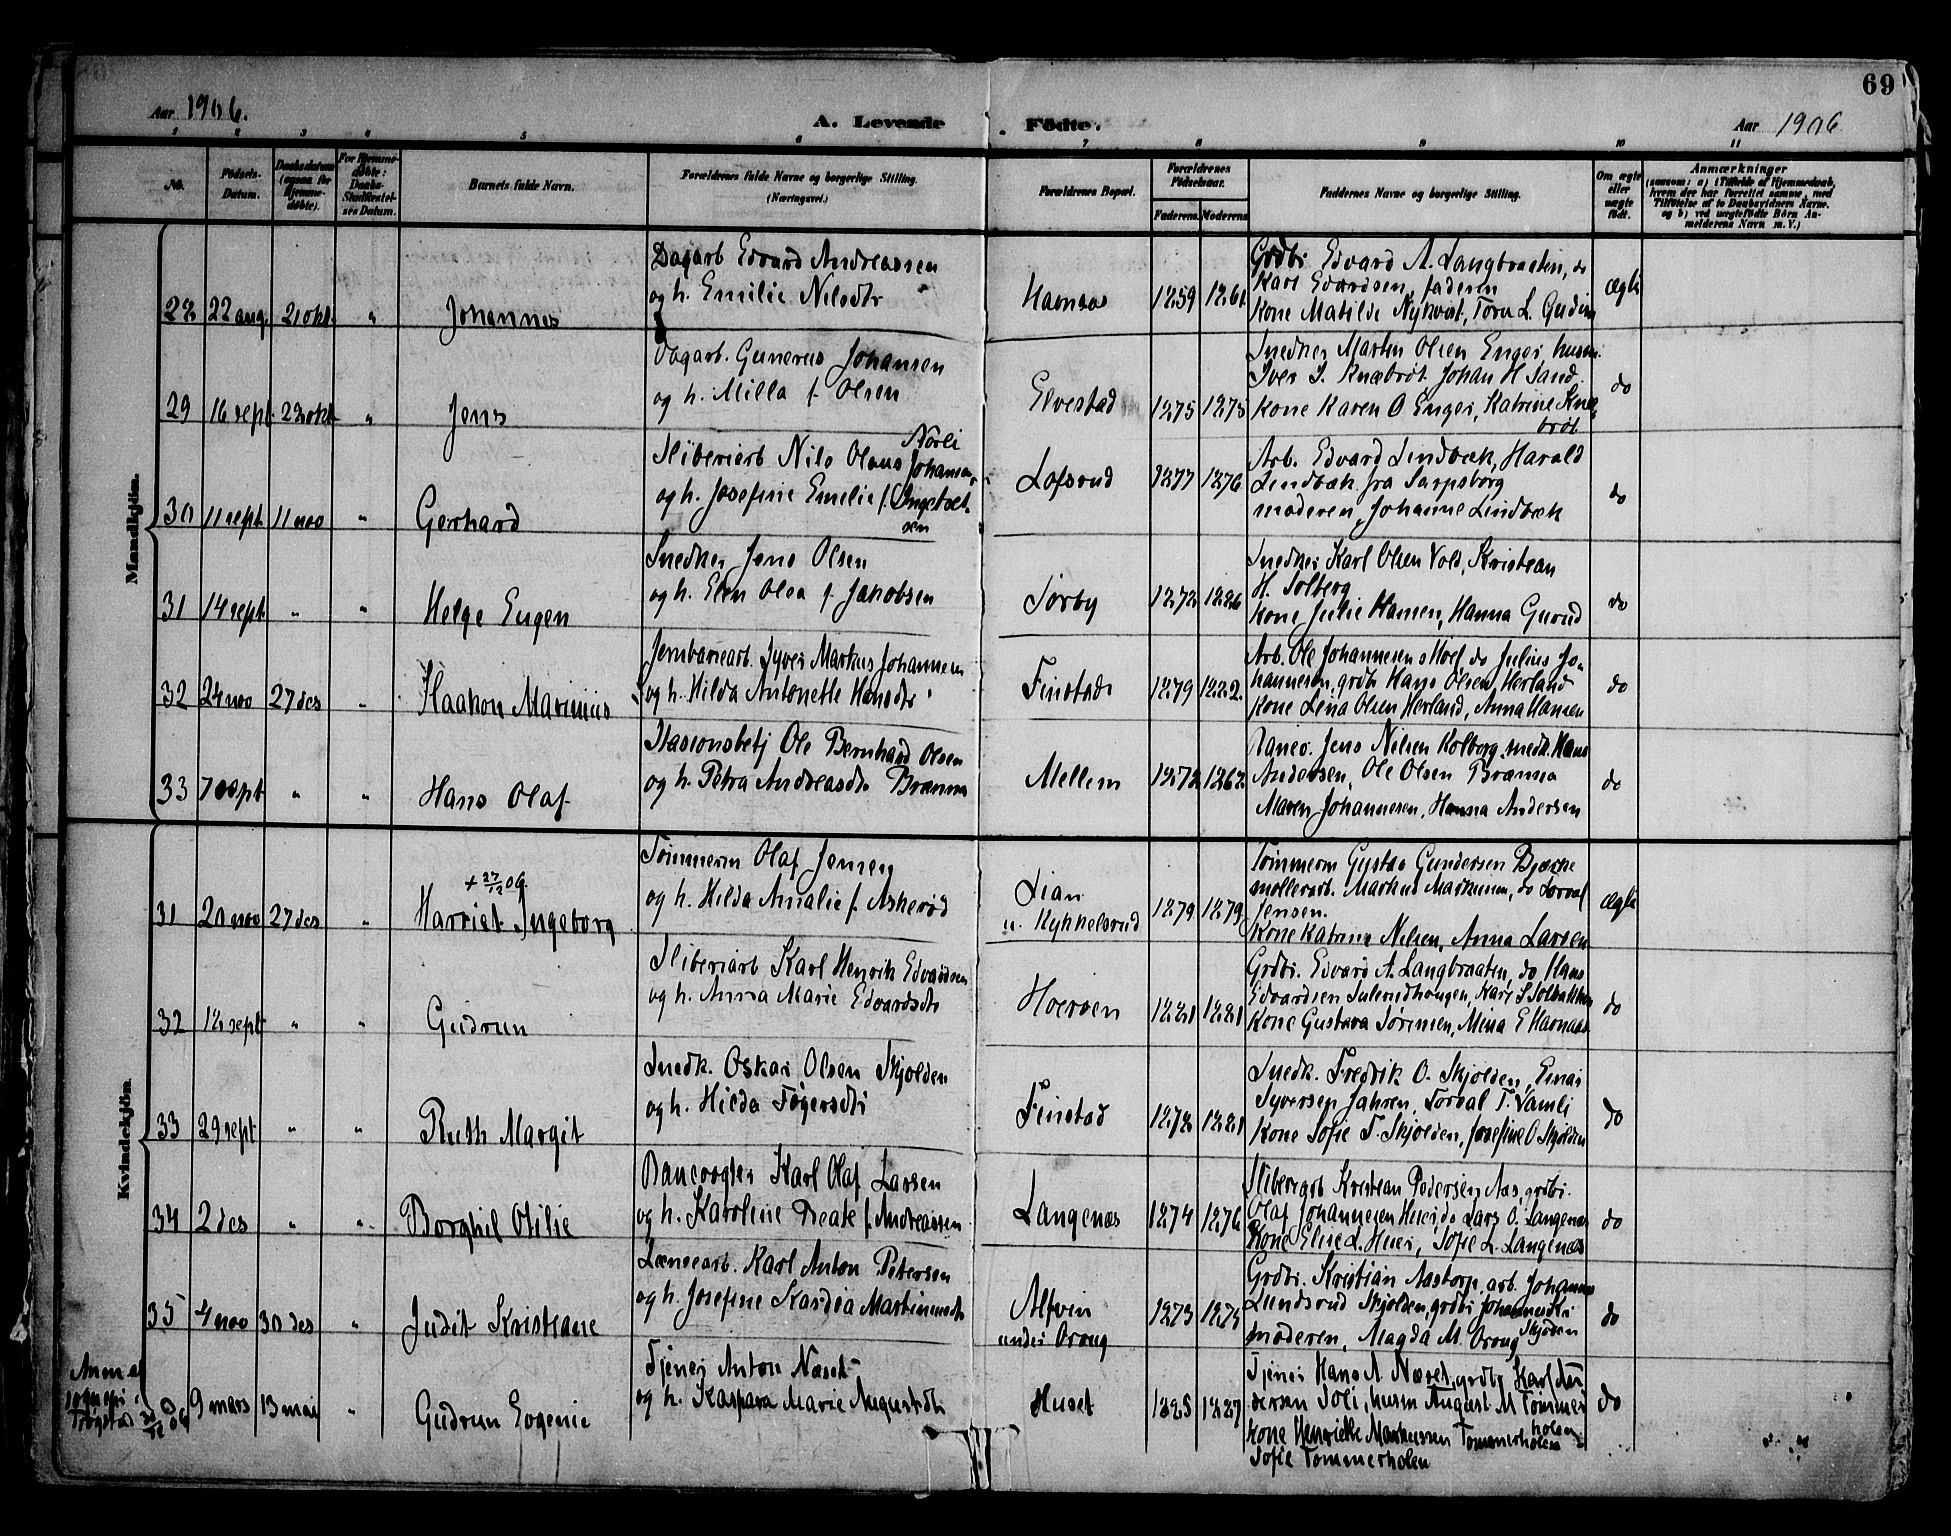 69
Aar 1906.
A. Levende Födte.
Aar 1906
1 2 3 4 5 6 7 8 9 10 11
No.
Födsels-Datum.
Daabsdatum (ogsaa for Hjemme-döbte).
For Hjemme-döbte: Daabs-Stadfæstel-ses Datum.
Barnets fulde Navn.
Forældrenes fulde Navne og borgerlige Stilling. (Næringsvei.)
Forældrenes Bopæl.
Forældrenes Födselsaar.
Faderens. Moderens
Faddernes Navne og borgerlige Stilling.
Om ægte eller uægte födt.
Anmærkninger
(saasom: a) i Tilfælde af Hjemmedaab, hvem der har forrettet samme, med Tilföielse af to Daabsvidners Navne, og b) ved uægtefödte Börn An-melderens Navn m. V.)
Mandkjön.
28 22 aug. 21 okt. " Johannes
Dagarb Edvard Andreassen
og h. Emilie Nilsdtr
Havnaas 1859 1861
Grdbr Edvard A. Langbraaten, do
Karl Edvardsen, faderen
Kone Matilde Nykvist, Tora L. Gudim
ægte
29 16 sept 28 okt " Jens
Dagarb. Gunerius Johansen
og h. Milla f. Olsen
Elvestad 1875 1875
Snedker Martin Olsen Enger, husm.
Iver J. Knæbrøt, Johan H Sand
Kone Karen O Enger, Katrine Knæ-
brøt
do
30 11 sept 11 nov " Gerhard
Sliberiarb Nils Olaus Johansen Nørli
og h. Josefine Emilie f. Ingebret-
sen
Lofsrud 1877 1876
Arb. Edvard Lindbæk, Harald
Lindbæk fra Sarpsborg
moderen, Johanne Lindbæk
do
31 14 sept " " Helge Eugen
Snedker Jens Olsen
og h. Elen Olea f. Jakobsen
Sørby 1872 1886
Snedker Karl Olsen Vold, Kristian
H. Solberg
Kone Julie Hansen, Hanna Gurud
do
32 24 nov 27 des " Haakon Marinius
Jernbanearb. Syver Markus Johannesen
og h. Hilda Antonette Hansdtr
Finstad 1879 1882
Arb. Ole Johannesen Moel, do Julius Jo-
hannesen, grdb Hans Olsen Herland
Kone Lena Olsen Herland, Anna Hansen
do
33 7 sept " " Hans Olaf
Stasionsbetj Ole Bernhard Olsen
og h. Petra Andreasdtr Brænna
Mellem 1872 1862
Jens Nilsen Kolborg, snedk. Hans
Andersen, Ole Olsen Brænna
Maren Johannesen, Hanna Andersen
do
Kvindekjön.
31 20 nov 27 des " + 27/12 06. Harriet Ingeborg
Tømmerm Olaf Jensen
og h. Hilda Amalie f. Askerød
Lian
u. Kykkelsrud 1879 1879
Tømmerm Gustav Gundersen Bjærke
møllerarb. Markus Markussen, do Torval
Jensen.
Kone Katrine Nilsen, Anna Larsen
ægte
32 18 sept " " Gudrun
Sliberiarb Karl Henrik Edvardsen
og h. Anna Marie Edvardsdtr
Hoerven 1881 1881
Grdbr. Edvard A. Langbraaten, do Hans
Edvardsen Sulerudhaugen, Karl S Solbakken
Kone Gustava Sørensen, Mina E Havnaas
do
33 29 sept " " Ruth Margit
Snedk. Oskar Olsen Skjolden
og h. Hilda Tøgersdtr
Finstad 1878 1881
Snedk. Fredrik O. Skjolden, Einar
Syversen Jahren, Torval T. Vamli
Kone Sofie F. Skjolden, Josefine O Skjolden
do
34 2 des " " Borghil Otilie
Banevogter Karl Olaf Larsen
og h. Karoline Beate f. Andreassen
Langenæs 1874 1876
Sliberiarb Kristian Pedersen Aas, grdbr.
Olaf Johannesen Heier, do Lars O. Langenæs
Kone Elise L. Heier, Sofie L. Langenæs
do
35 4 nov 30 des " Judit Kristiane
Lænsearb. Karl Anton Petersen
og h. Josefine Kardia Martinusdtr
Alfvin
under Oraug 1873 1875
Grdbr. Kristian Aastorp, arb. Johannes
Lundsrud Skjolden, grdbr Johannes Kr
moderen, Magda M. Oraug Skjolden
do
Anm af
Trøgstad 31/12 06
9 mars 13 mai " Gudrun Eogenie
Tjener Anton Næset
og h. Kaspara Marie Augustsdtr
Huset 1885 1887
Tjener Hans A Næset, grdbr Karl An
dersen Soli, husm August M Tømmer
holen
Kone Henriette Markussen Tømmerholen
Sofie Tømmerholen
do